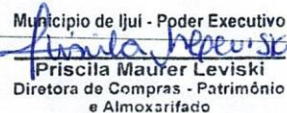 Município de Ijuí - Poder Executivo
Priscila Maurer Leviski
Diretora de Compras - Patrimônio
e Almoxarifado